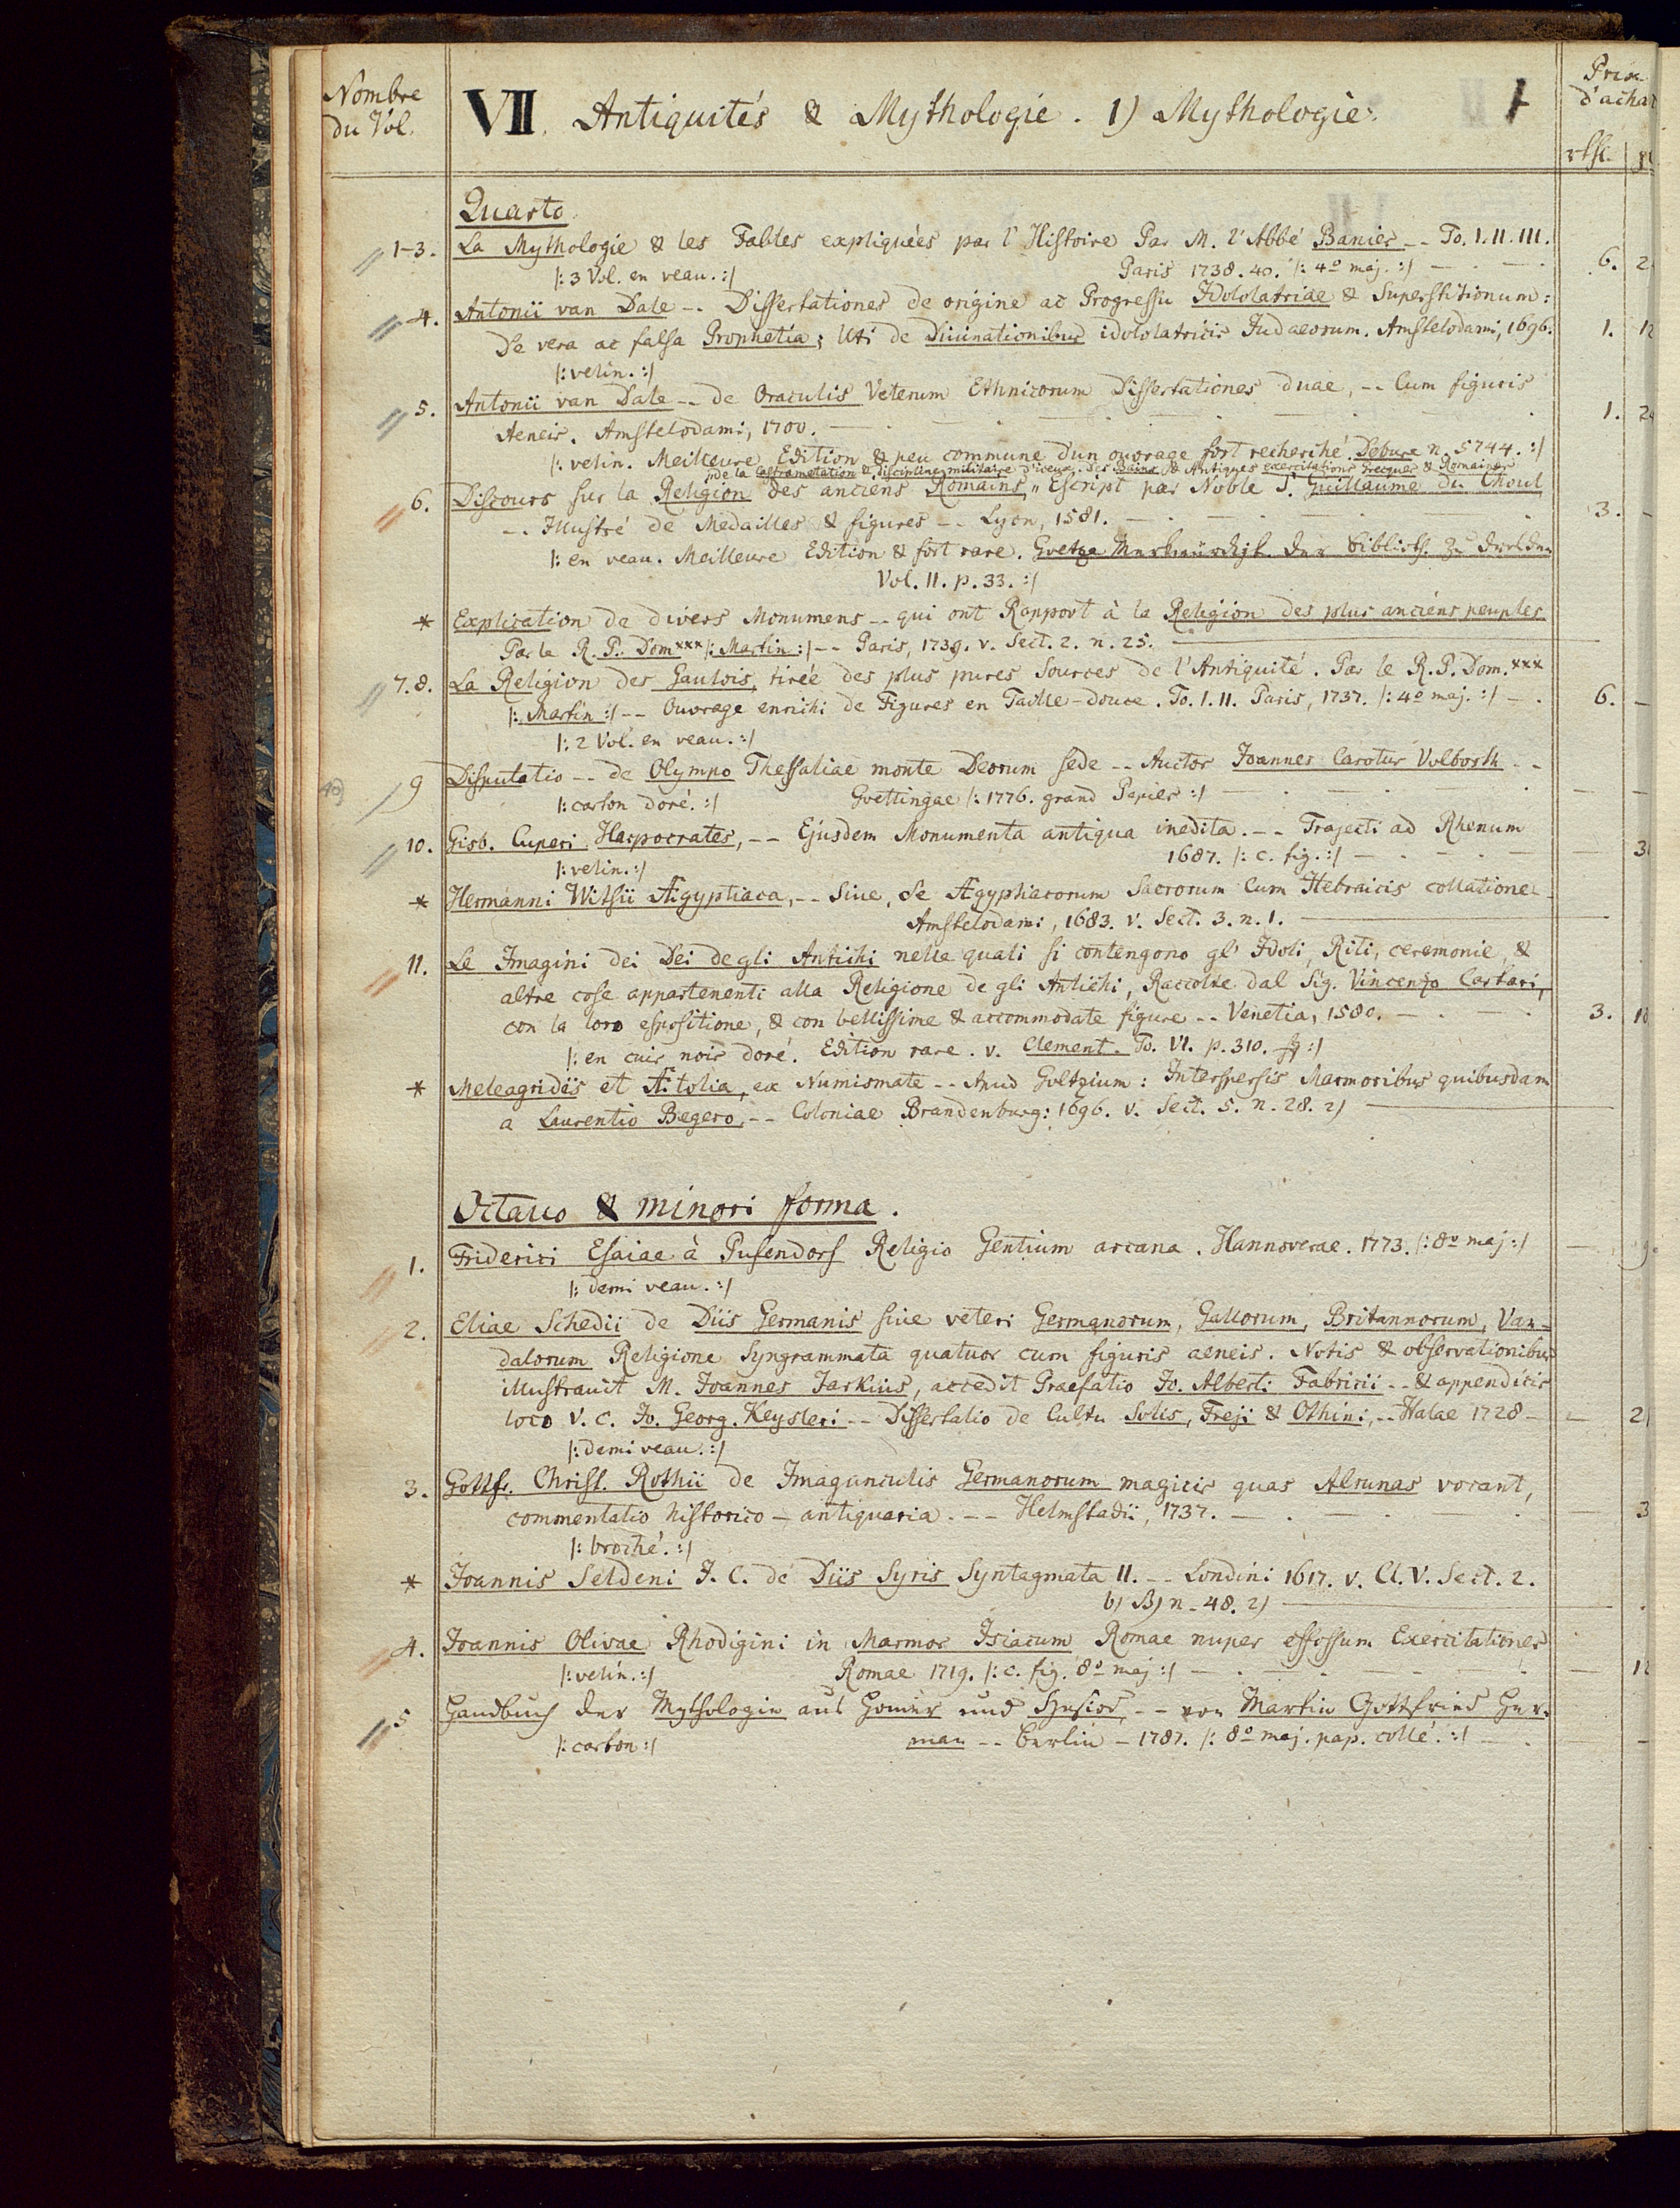 Nombre
du Vol.
VII. Antiquités & Mythologie. 1) Mythologie.
1
Prix
d'achat
rthl.
Quarto.
1-3. La Mythologie & les Fables expliquées par l'Histoire Par M. l'Abbé Banier -- To. I. II. III.
|: 3 Vol. en veau. :| Paris 1738. 40. |: 4º maj. :| — 6. 2
4. Antonii van Dale -- Dissertationes de origine ac Progressu Idololatriae & Superstitionum:
De vera ac falsa Prophetia; Uti de Diuinationibus idololatricis Judaeorum. Amstelodami, 1696. 1. 12
|: velin. :|
5. Antonii van Dale -- de Oraculis Veterum Ethnicorum Dissertationes duae, -- Cum figuris
Aeneis. Amstelodami, 1700. — 1. 2
|: velin. Meilleure Edition & peu commune d'un ouvrage fort recherché. Debure n. 5744. :|
de la Castrametation & discipline militaire d'iceux. Des Bains & Antiques exercitations Grecques & Romaines
6. Discours sur la Religion des anciens Romains, Escript par Noble S. Guillaume du Choul
-- Illustré de Medailles & figures -- Lyon, 1581. — 3. —
|: en veau. Meilleure Edition & fort rare. Goetze Merkwürdigk. der Biblioth. zu Dresden
Vol. II. p. 33. :|
* Explication de divers Monumens -- qui ont Rapport à la Religion des plus anciens peuples
Par le R. P. Dom xxx |: Martin :| -- Paris, 1739. v. Sect. 2. n. 25. —
7. 8. La Religion des Gaulois, tirée des plus pures Sources de l'Antiquité. Par le R. P. Dom. xxx
|: Martin :| -- Ouvrage enrichi de Figures en Taille-douce. To. I. II. Paris, 1737. |: 4º maj. :| — 6. —
|: 2 Vol. en veau. :|
9 Disputatio -- de Olympo Thessaliae monte Deorum sede -- Auctor Joannes Carolus Volborth --
|: carton doré. :| Goettingae |: 1776. grand Papier :| — — —
10. Gisb. Cuperi Harpocrates, -- Ejusdem Monumenta antiqua inedita. -- Trajecti ad Rhenum
1687. |: c. fig. :| — — 3
|: velin. :|
* Hermanni Witsii Ægyptiaca, -- Siue, de Ægyptiacorum Sacrorum Cum Hebraicis collatione --
Amstelodami, 1683. v. Sect. 3. n. 1. —
11. Le Imagini dei Dei de gli Antichi nelle quali si contengono gl' Idoli, Riti, ceremonie, &
altre cose appartenenti alla Religione de gli Antichi, Raccolte dal Sig. Vincenzo Cartari,
con la loro espositione, & con bellissime & accommodate figure -- Venetia, 1580. — 3. 10
|: en cuir noir doré. Edition rare. v. Clement. To. VI. p. 310. :|
* Meleagrides et Ætolia, ex Numismate -- Apud Goltzium: Interspersis Marmoribus quibusdam
a Laurentio Begero, -- Coloniae Brandenburg: 1696. v. Sect. 5. n. 28. 2) —
Octauo & minori forma.
1. Friderici Esaiae à Pufendorf Religio Gentium arcana. Hannoverae. 1773. |: 8º maj :| —
|: demi veau. :|
2. Eliae Schedii de Diis Germanis siue veteri Germanorum, Gallorum, Britannorum, Van-
dalorum Religione Syngrammata quatuor cum figuris aeneis. Notis & observationibus
illustrauit M. Joannes Jarkius, accedit Praefatio Jo. Alberti Fabricii -- & appendicis
loco V. C. Jo. Georg. Keysleri -- Dissertatio de Cultu Solis, Freji & Othini, -- Halae 1728 — — 2
|: demi veau. :|
3. Gottfr. Christ. Rothii de Imagunculis Germanorum magicis quas Alrunas vocant,
commentatio historico-antiquaria. -- Helmstadii, 1737. — — 3
|: broché. :|
* Joannis Seldeni J. C. de Diis Syris Syntagmata II. -- Londini 1617. v. Cl. V. Sect. 2.
b) B) n. 48. 2) —
4. Joannis Olivae Rhodigini in Marmor Isiacum Romae nuper effossum Exercitationes
|: velin. :| Romae 1719. |: c. fig. 8º maj :| — — 12
5 Handbuch der Mythologie aus Homer und Hesiod, -- von Martin Gottfried Her-
|: carton :| man -- Berlin — 1787. |: 8º maj. pap. collé. :| —